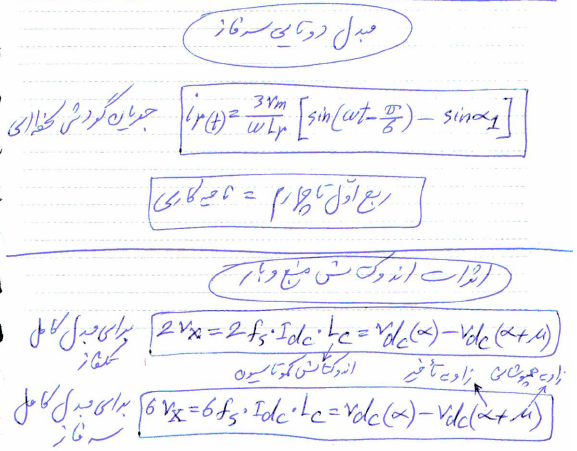 مبدل دوتایی سه فاز
جریان گردشی لحظه‌ای i_r(t) = 3Vm/ωLr [sin(ωt - π/6) - sinα1]
ربع اول تا چهارم = ناحیه کاری
اثرات اندوکتانس منبع و بار
برای مبدل کامل تکفاز 2Vx = 2fs·Idc·Lc = Vdc(α) - Vdc(α+μ)
اندوکتانس کموتاسیون زاویه تأخیر زاویه همپوشانی
برای مبدل کامل سه فاز 6Vx = 6fs·Idc·Lc = Vdc(α) - Vdc(α+μ)